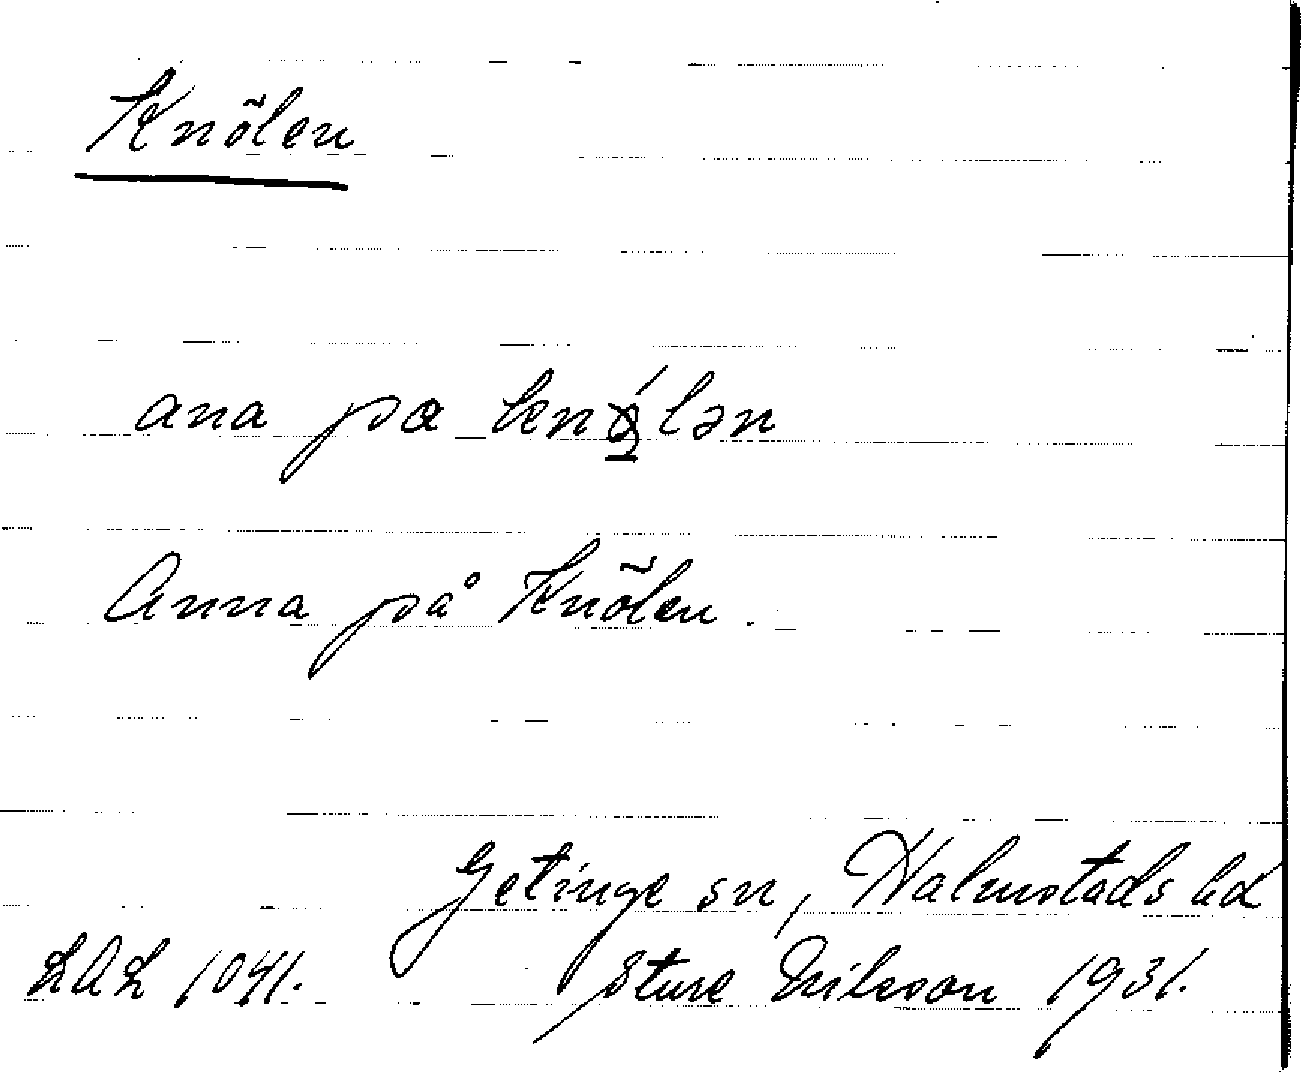 Knölen
ana pɑ knǿlən
Anna på Knölen.
Getinge sn, Halmstads hd
LAL 1041. Sture Nilsson 1931.